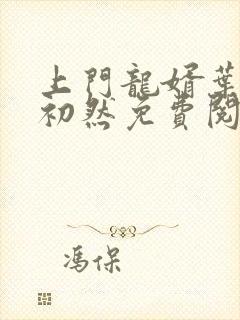 上門龍婿葉
初然免費閱
馮保